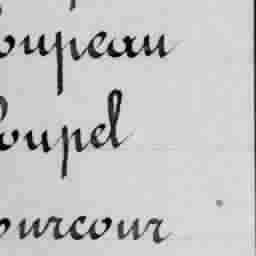 oupeau
oupel
ourcour